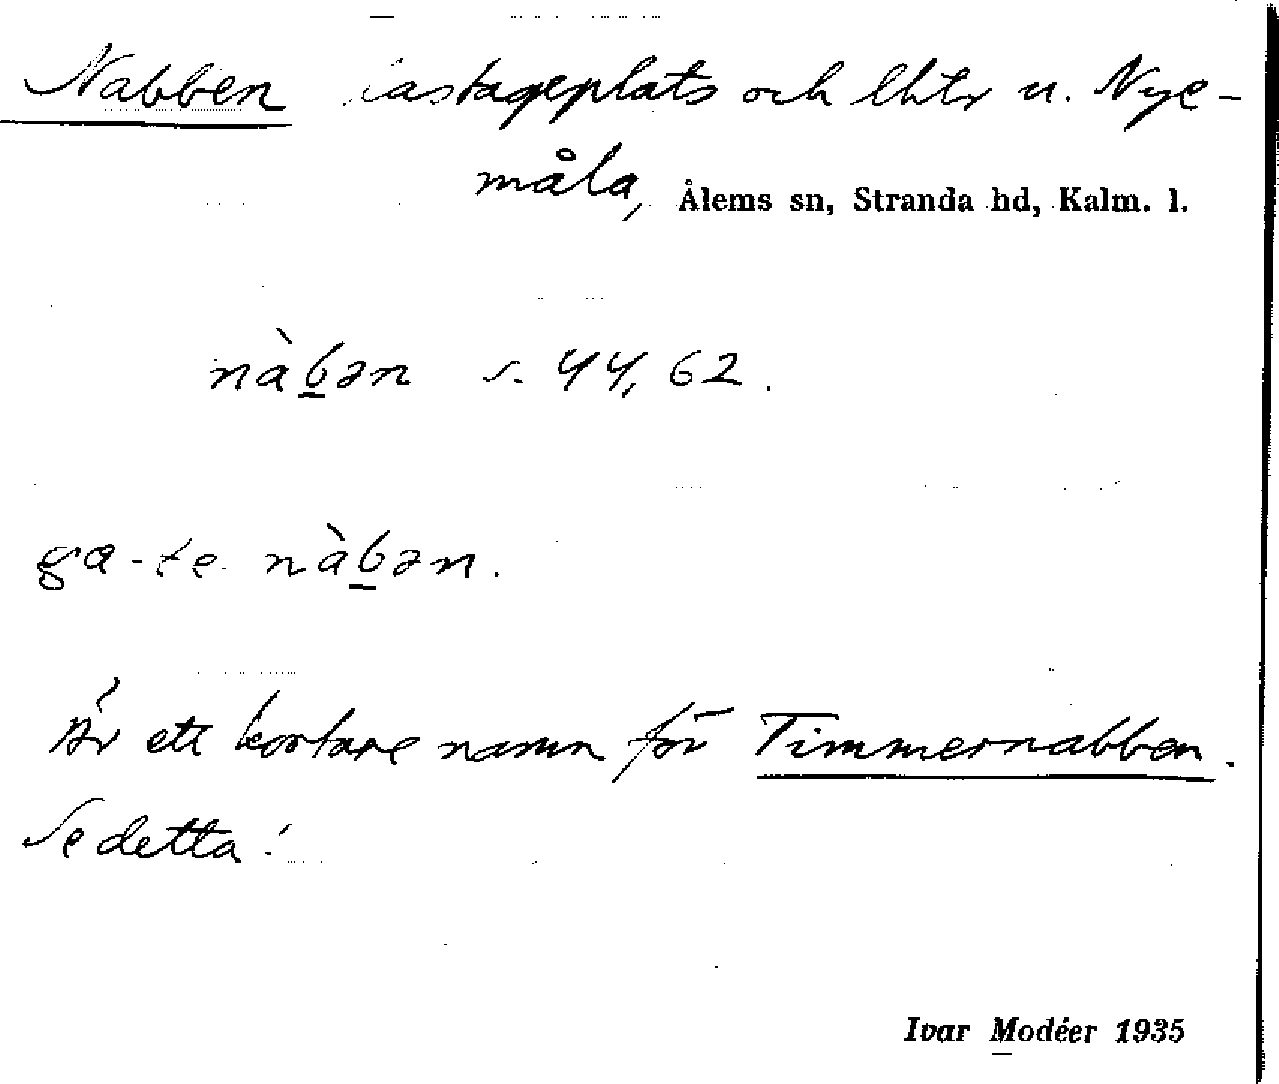 Nabben lastageplats och lhtr u. Nye-
måla, Ålems sn, Stranda hd, Kalm. l.
nàb̲ən s. 44, 62.
ga-te nàb̲ən.
Är ett kortare namn för Timmernabben.
Se detta!
Ivar Modéer 1935